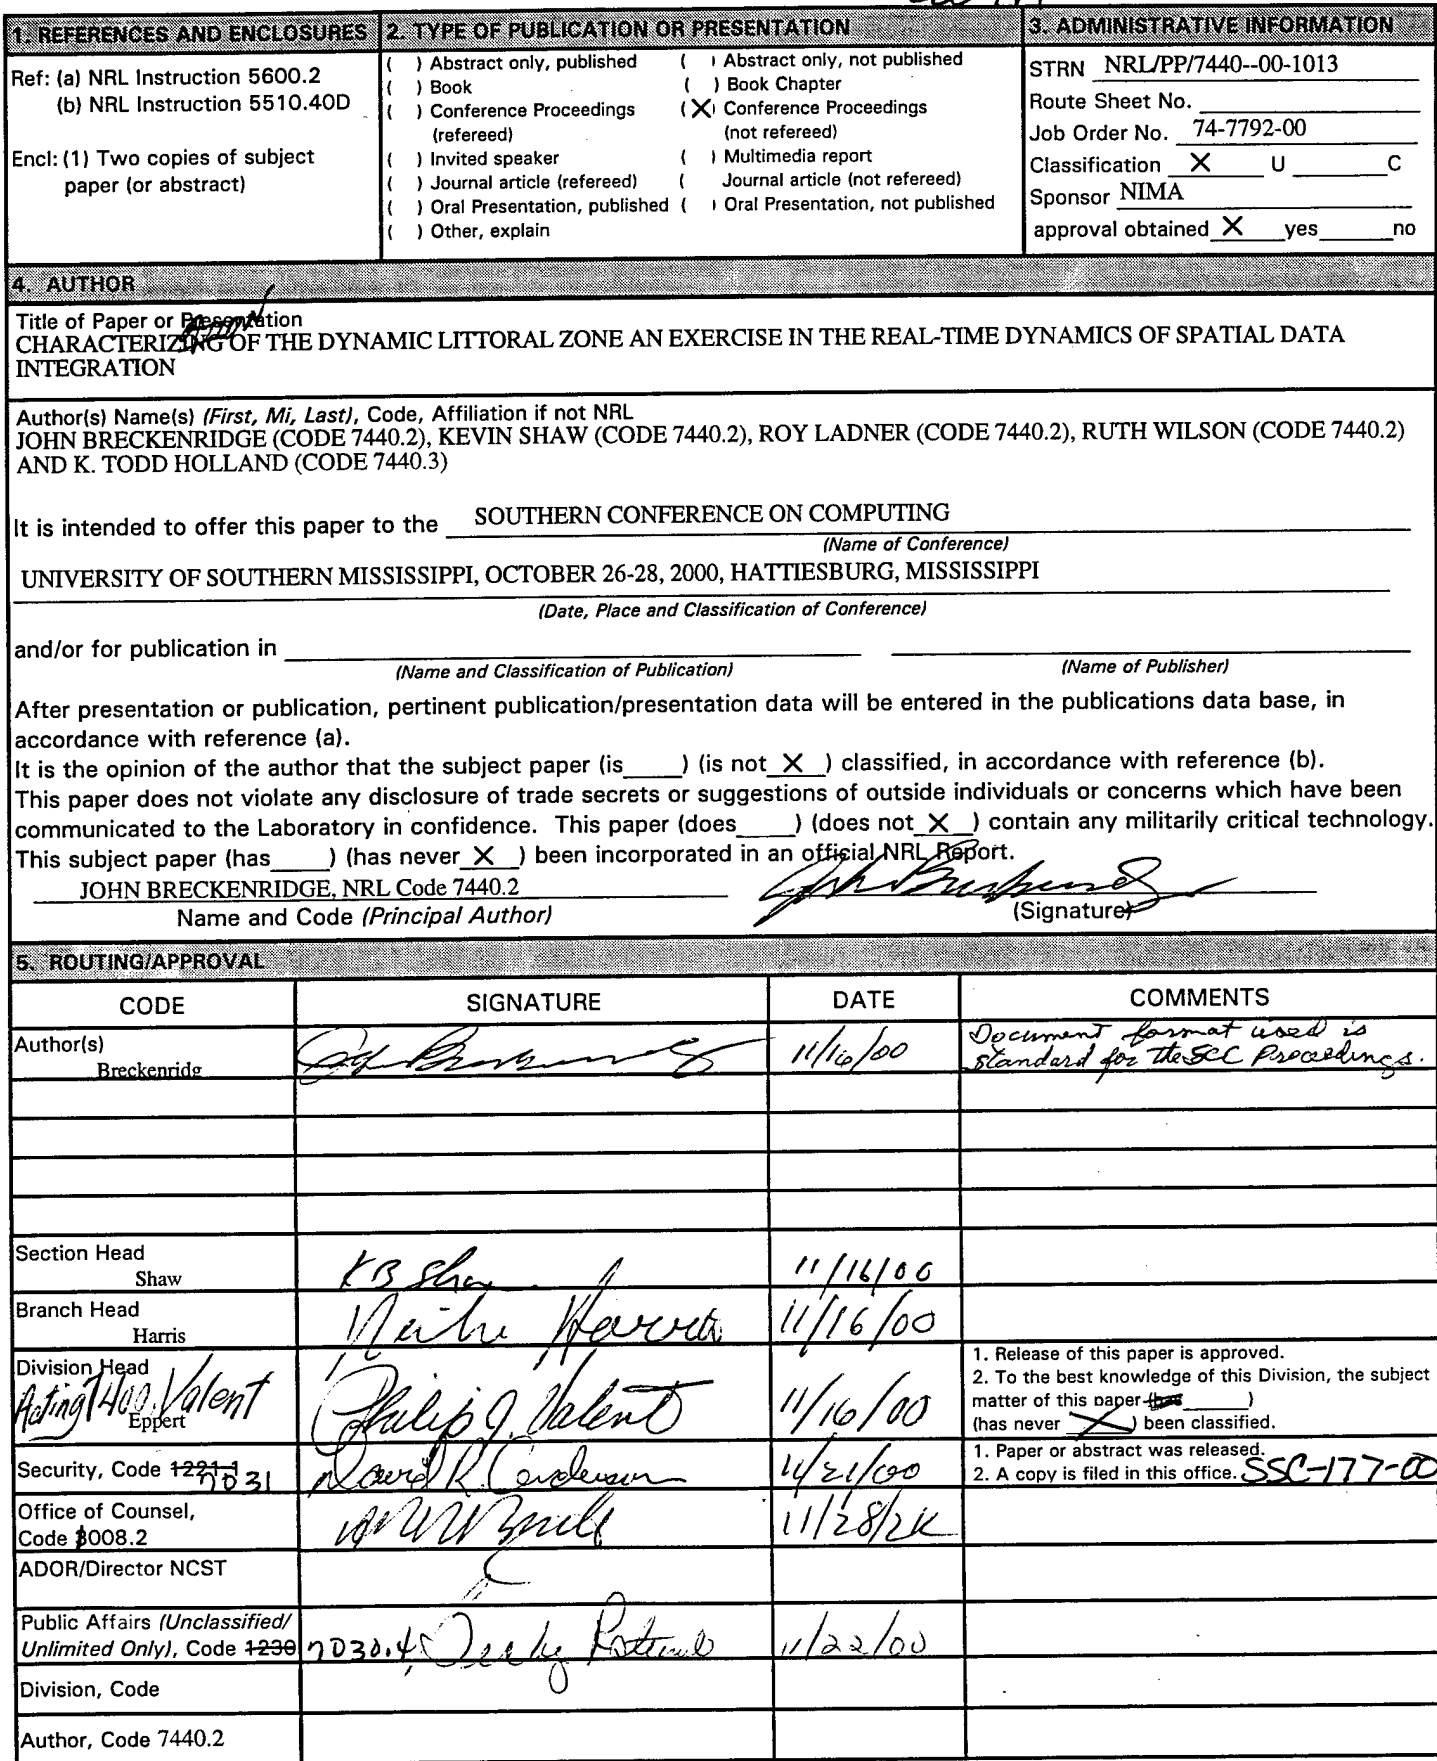 1. REFERENCES AND ENCLOSURES
Ref: (a) NRL Instruction 5600.2
(b) NRL Instruction 5510.40D
Encl: (1) Two copies of subject
paper (or abstract)
2. TYPE OF PUBLICATION OR PRESENTATION
( ) Abstract only, published ( ) Abstract only, not published
( ) Book ( ) Book Chapter
( ) Conference Proceedings (X) Conference Proceedings
(refereed) (not refereed)
( ) Invited speaker ( ) Multimedia report
( ) Journal article (refereed) ( Journal article (not refereed)
( ) Oral Presentation, published ( ) Oral Presentation, not published
( ) Other, explain
3. ADMINISTRATIVE INFORMATION
STRN NRL/PP/7440--00-1013
Route Sheet No.
Job Order No. 74-7792-00
Classification X U C
Sponsor NIMA
approval obtained X yes no
4. AUTHOR
Title of Paper or Presentation
CHARACTERIZING OF THE DYNAMIC LITTORAL ZONE AN EXERCISE IN THE REAL-TIME DYNAMICS OF SPATIAL DATA
INTEGRATION
Author(s) Name(s) (First, Mi, Last), Code, Affiliation if not NRL
JOHN BRECKENRIDGE (CODE 7440.2), KEVIN SHAW (CODE 7440.2), ROY LADNER (CODE 7440.2), RUTH WILSON (CODE 7440.2)
AND K. TODD HOLLAND (CODE 7440.3)
It is intended to offer this paper to the SOUTHERN CONFERENCE ON COMPUTING
(Name of Conference)
UNIVERSITY OF SOUTHERN MISSISSIPPI, OCTOBER 26-28, 2000, HATTIESBURG, MISSISSIPPI
(Date, Place and Classification of Conference)
and/or for publication in
(Name and Classification of Publication) (Name of Publisher)
After presentation or publication, pertinent publication/presentation data will be entered in the publications data base, in
accordance with reference (a).
It is the opinion of the author that the subject paper (is____) (is not X ) classified, in accordance with reference (b).
This paper does not violate any disclosure of trade secrets or suggestions of outside individuals or concerns which have been
communicated to the Laboratory in confidence. This paper (does____) (does not X ) contain any militarily critical technology.
This subject paper (has____) (has never X ) been incorporated in an official NRL Report.
JOHN BRECKENRIDGE, NRL Code 7440.2
Name and Code (Principal Author) (Signature)
5. ROUTING/APPROVAL
CODE SIGNATURE DATE COMMENTS
Author(s)
Breckenridg 11/16/00 Document format used is
standard for the SCC Proceedings.
Section Head
Shaw KB Shaw 11/16/00
Branch Head
Harris 11/16/00
Division Head
Acting 7400, Valent
Eppert Philip J. Valent 11/16/00
1. Release of this paper is approved.
2. To the best knowledge of this Division, the subject
matter of this paper (has ____)
(has never X ) been classified.
Security, Code 1221.1 7031 11/21/00
1. Paper or abstract was released.
2. A copy is filed in this office. SSC-177-00
Office of Counsel,
Code 1008.2 11/28/2K
ADOR/Director NCST
Public Affairs (Unclassified/
Unlimited Only), Code 1230 7030.4 11/22/00
Division, Code
Author, Code 7440.2